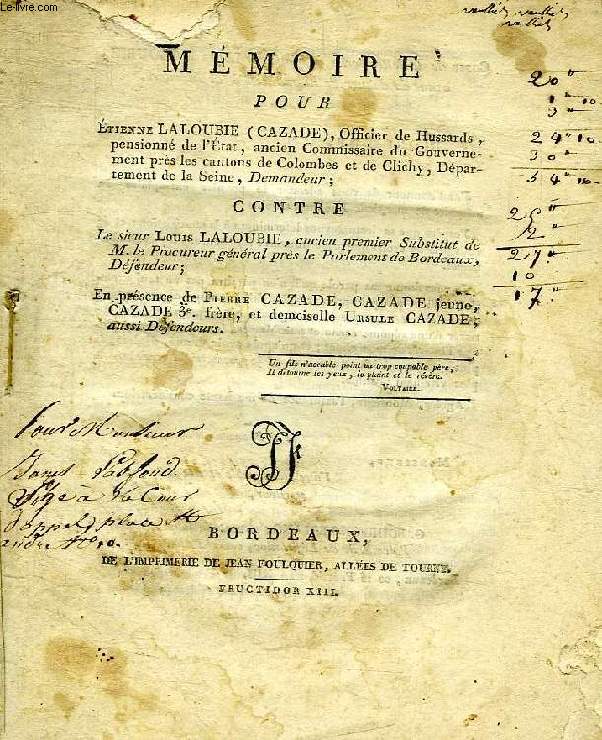 Le-livre.com
MÉMOIRE
POUR
ÉTIENNE LALOUBIE (CAZADE), Officier de Hussards,
pensionné de l'État, ancien Commissaire du Gouverne-
ment près les cantons de Colombes et de Clichy, Dépar-
tement de la Seine, Demandeur;
CONTRE
Le sieur Louis LALOUBIE, ancien premier Substitut de
M. le Procureur général près le Parlement de Bordeaux,
Défendeur;
En présence de PIERRE CAZADE, CAZADE jeune,
CAZADE 3e. frère, et demoiselle URSULE CAZADE,
aussi Défendeurs.
Un fils n'accable point un trop coupable père,
Il détourne les yeux, le plaint et le révère.
VOLTAIRE.
20
1 10
3
24 10
30
54 10
25
2
27
10
17
Pour Monsieur
Juge à la Cour
d'appel, place
BORDEAUX,
DE L'IMPRIMERIE DE JEAN FOULQUIER, ALLÉES DE TOURNY.
FRUCTIDOR XIII.